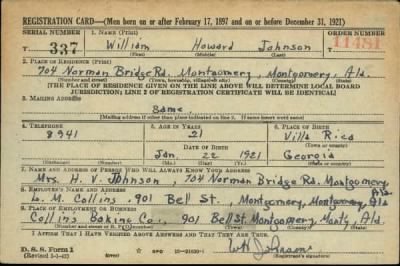 REGISTRATION CARD—(Men born on or after February 17, 1897 and on or before December 31, 1921)
SERIAL NUMBER 1. NAME (Print) ORDER NUMBER
T 337 William Howard Johnson 11481
(First) (Middle) (Last)
2. PLACE OF RESIDENCE (Print)
704 Norman Bridge Rd. Montgomery, Montgomery, Ala.
(Number and street) (Town, township, village or city) (County) (State)
[THE PLACE OF RESIDENCE GIVEN ON THE LINE ABOVE WILL DETERMINE LOCAL BOARD
JURISDICTION; LINE 2 OF REGISTRATION CERTIFICATE WILL BE IDENTICAL]
3. MAILING ADDRESS
Same
[Mailing address if other than place indicated on line 2. If same insert word same]
4. TELEPHONE 5. AGE IN YEARS 6. PLACE OF BIRTH
8941 21 Villa Rica
DATE OF BIRTH (Town or county)
Jan. 22 1921 Georgia
(Exchange) (Number) (Mo.) (Day) (Yr.) (State or country)
7. NAME AND ADDRESS OF PERSON WHO WILL ALWAYS KNOW YOUR ADDRESS
Mrs. H. V. Johnson, 704 Norman Bridge Rd. Montgomery, Ala.
8. EMPLOYER'S NAME AND ADDRESS
L. M. Collins, 901 Bell St., Montgomery, Montgomery, Ala.
9. PLACE OF EMPLOYMENT OR BUSINESS
Collins Baking Co., 901 Bell St. Montgomery, Ala.
(Number and street or R. F. D. number) (Town) (County) (State)
I AFFIRM THAT I HAVE VERIFIED ABOVE ANSWERS AND THAT THEY ARE TRUE.
D. S. S. Form 1
(Registrant's signature)